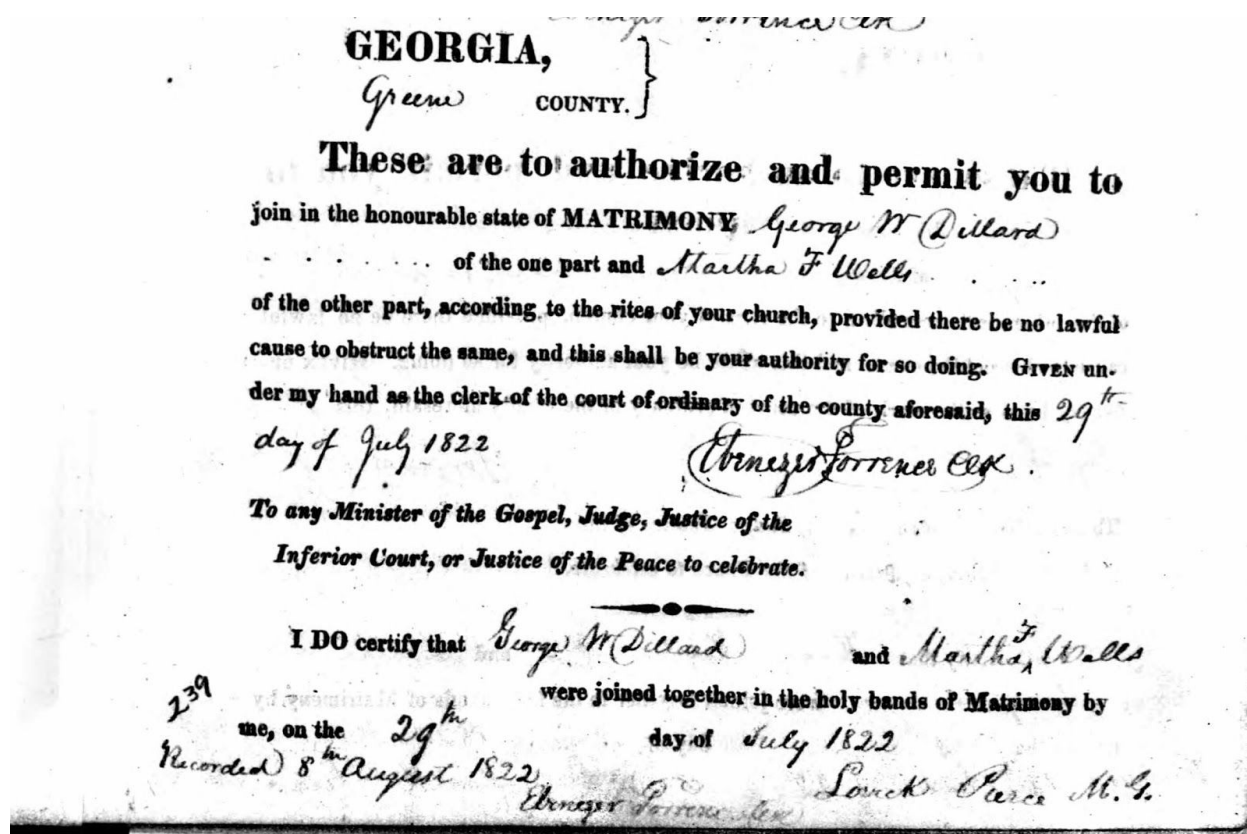 Ebenezer Torrence Clk
GEORGIA,
Greene COUNTY.
These are to authorize and permit you to
join in the honourable state of MATRIMONY, George W Dillard
of the one part and Martha F Wells
of the other part, according to the rites of your church, provided there be no lawful
cause to obstruct the same, and this shall be your authority for so doing. GIVEN un-
der my hand as the clerk of the court of ordinary of the county aforesaid, this 29th
day of July 1822 Ebenezer Torrence Clk.
To any Minister of the Gospel, Judge, Justice of the
Inferior Court, or Justice of the Peace to celebrate.
I DO certify that George W Dillard and Martha F Wells
were joined together in the holy bands of Matrimony by
239
me, on the 29th day of July 1822
Recorded 8th August 1822 Lovick Pierce M.G.
Ebenezer Torrence Clk